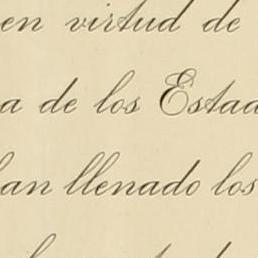 en virtud de
a de los Estad
an llenado los